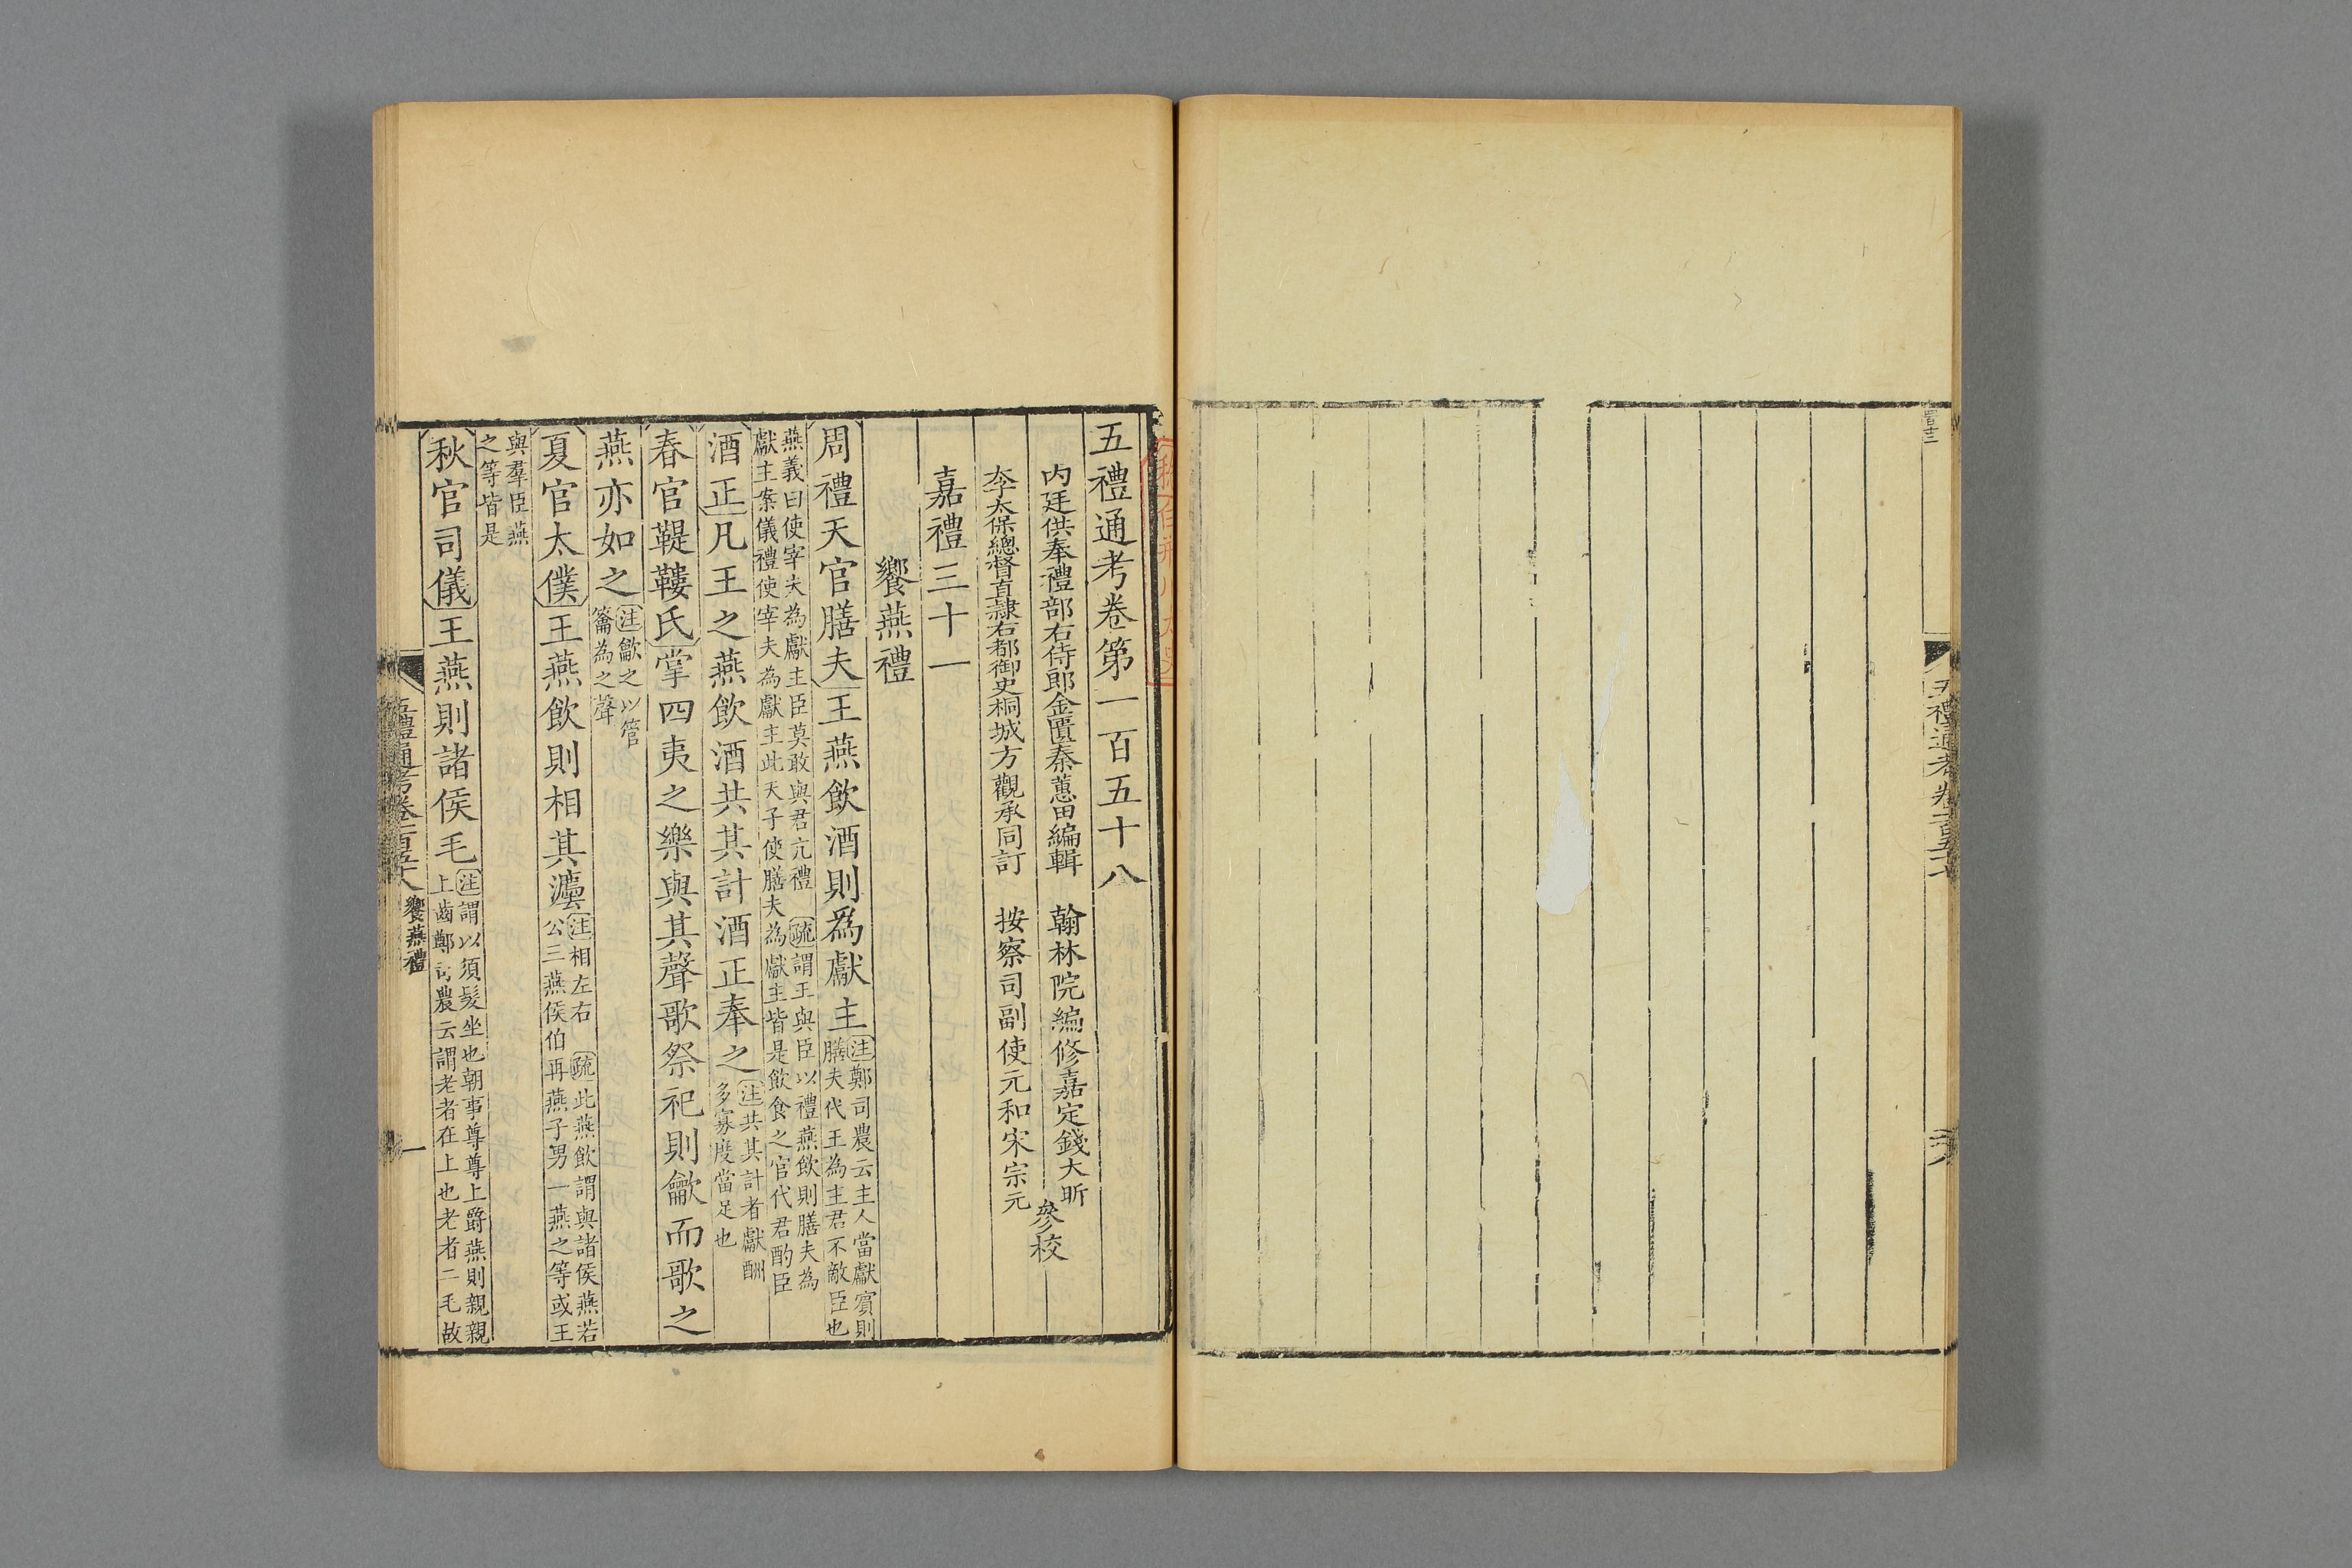 五禮通考卷第一百五十八
内廷供奉禮部右侍郎金匱秦蕙田編輯 翰林院編修嘉定錢大昕
太子太保總督直隸右都御史桐城方觀承同訂 按察司副使元和宋宗元
參校
嘉禮三十一
饗燕禮
周禮天官膳夫王燕飲酒則爲獻主
注鄭司農云主人當獻賓則
膳夫代王為主君不敵臣也
燕義曰使宰夫為獻主臣莫敢與君亢禮 疏謂王與臣以禮燕飲則膳夫為
獻主案儀禮使宰夫為獻主此天子使膳夫為獻主皆是飲食之官代君酌臣
酒正凡王之燕飲酒共其計酒正奉之
注共其計者獻酬
多寡度當足也
春官鞮鞻氏掌四夷之樂與其聲歌祭祀則龡而歌之
燕亦如之
注龡之以管
籥為之聲
夏官太僕王燕飲則相其灋
注相左右 疏此燕飲謂與諸侯燕若
公三燕侯伯再燕子男一燕之等或王
與羣臣燕
之等皆是
秋官司儀王燕則諸侯毛
注謂以須髮坐也朝事尊尊上爵燕則親親
上齒鄭司農云謂老者在上也老者二毛故
五禮通考卷一百五十八 饗燕禮
一
五禮通考卷一百五十七